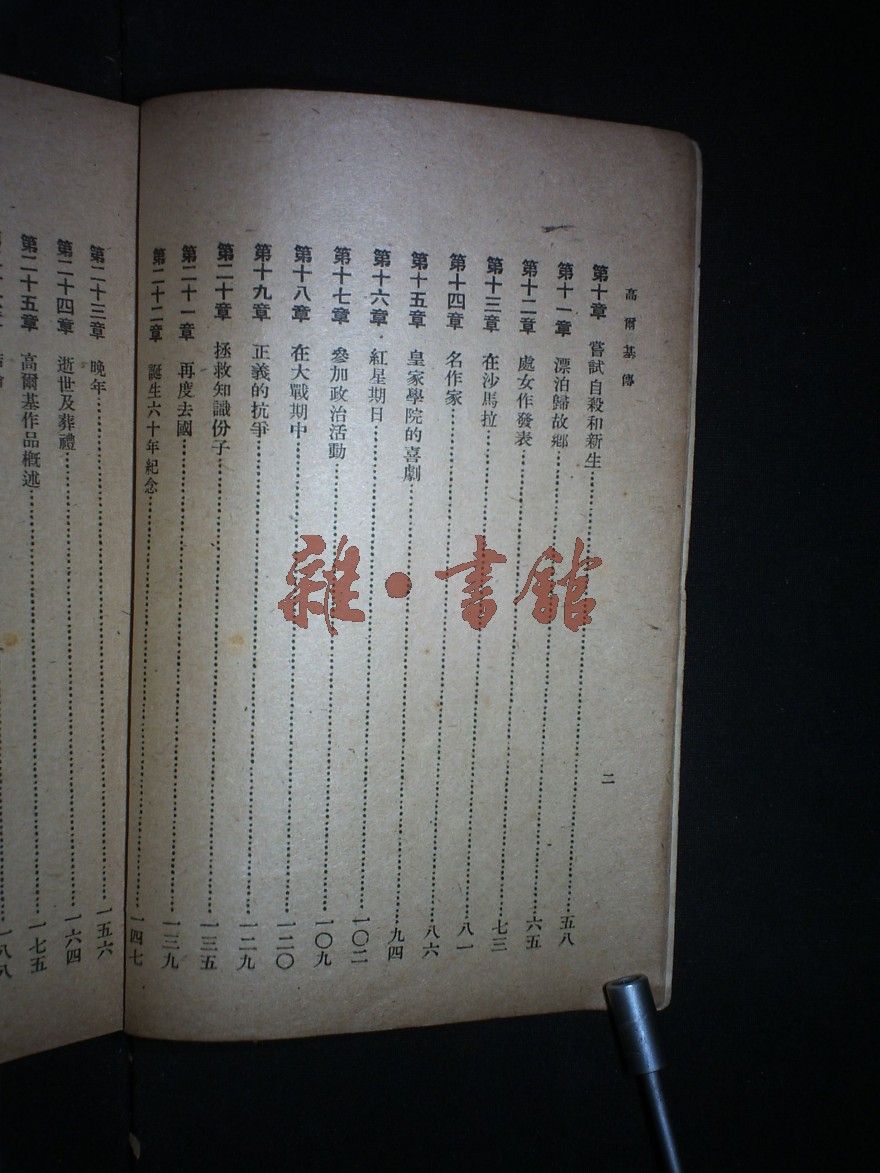 高爾基傳
二
第十章 嘗試自殺和新生………五八
第十一章 漂泊歸故鄉………六五
第十二章 處女作發表………七三
第十三章 在沙馬拉………八一
第十四章 名作家………八六
第十五章 皇家學院的喜劇………九四
第十六章 紅星期日………一〇二
第十七章 參加政治活動………一〇九
第十八章 在大戰期中………一二〇
第十九章 正義的抗爭………一二九
第二十章 拯救知識份子………一三五
第二十一章 再度去國………一三九
第二十二章 誕生六十年紀念………一四七
第二十三章 晚年………一五六
第二十四章 逝世及葬禮………一六四
第二十五章 高爾基作品概述………一七五
一八八
雜·書館